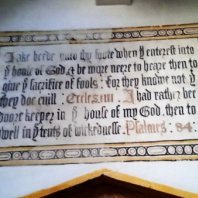 Take heede unto thy foote when yͤ enterest into
yͤ house of God & be more neere to heare then to
give yͤ sacrifice of fooles: For they know not yͭ
they doe evill. Eccles. iiii. I had rather bee
doore keeper in yͤ house of my God, then to
dwell in yͤ tents of wickednesse. Psalmes: 84: